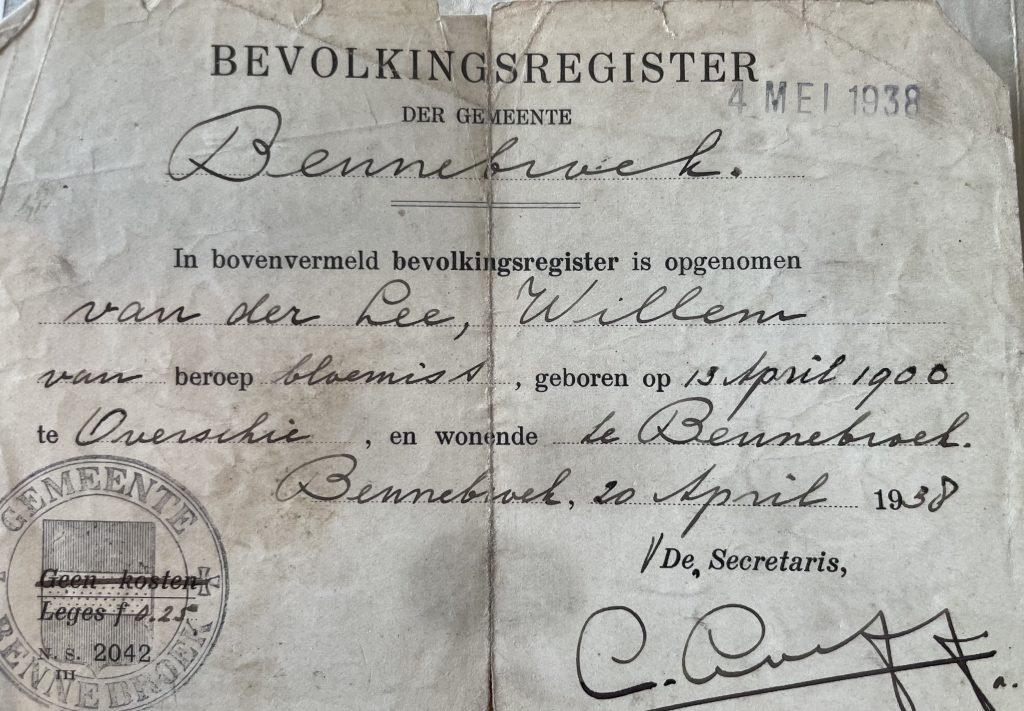 BEVOLKINGSREGISTER
4 MEI 1938
DER GEMEENTE
Bennebroek.
In bovenvermeld bevolkingsregister is opgenomen
van der Lee, Willem
van beroep bloemist, geboren op 13 April 1900
te Overschie, en wonende te Bennebroek.
Bennebroek, 20 April 1938
De Secretaris,
GEMEENTE BENNEBROEK
Geen kosten
Leges f 0.25
N. S. 2042
III
C.